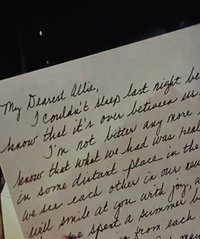 My Dearest Allie,
I couldn't sleep last night be
know that it's over between us.
I'm not bitter any more,
know that what we had was real
in some distant place in the
we see each other in our new
we'll smile at you with joy, a
we spent a summer b
from each